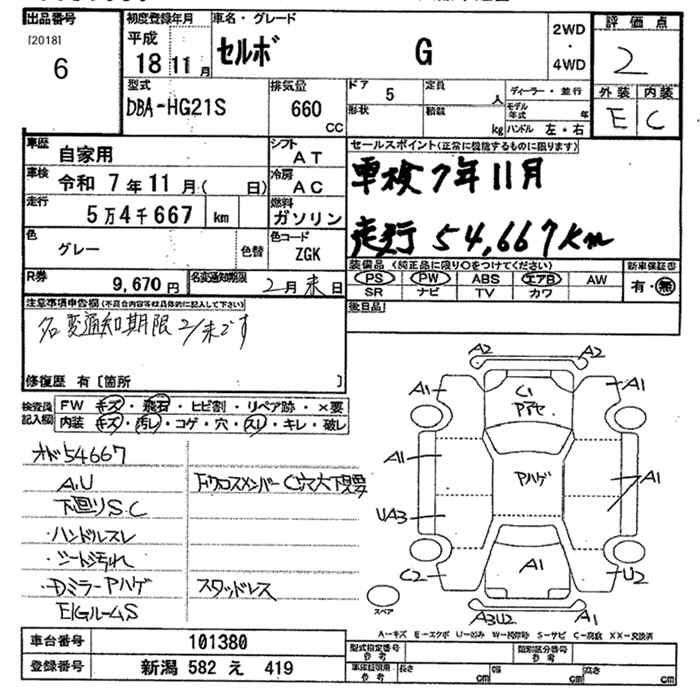 出品番号 初度登録年月 車名・グレード 評価点
[2018] 平成 2WD ・ 4WD
6 18 11月 セルボ G 2
型式 排気量 ドア 5 定員 人 ディーラー・並行 外装 内装
DBA-HG21S 660 CC 形状 積載 kg モデル年式 年 E C
ハンドル 左・右
車歴 自家用 シフト AT セールスポイント(正常に機能するものに限ります)
車検 令和 7年 11月 ( 日) 冷房 AC 車検7年11月
走行 5万4千667 km 燃料 ガソリン 走行 54,667km
色 グレー 色替 色コード ZGK 装備品 (純正品に限り○をつけてください) 新車保証書
PS PW ABS エアB AW 有・無
SR ナビ TV カワ
R券 9,670円 名変通知期限 2月末日 後日品
注意事項申告欄(不具合内容等は具体的に記入して下さい)
名変通知期限 2/末です
修復歴 有 [箇所 ]
検査員記入欄 FW キズ・飛石・ヒビ割・リペア跡・×要
内装 キズ・汚レ・コゲ・穴・スレ・キレ・破レ
オド54667
A.U
下廻りS.C
・ハンドルスレ
・シート汚れ
・Dミラー Pハゲ スタッドレス
E/GルームS
A2 A2
A1 C1 A1
A1 Pハゲ A1
UA3
C2 A1 U2
スペア A3U2 A1
A-キズ E-エクボ U-凹み W-補修跡 S-サビ C-腐食 XX-交換済
車台番号 101380 型式指定番号 参考 類別区分番号 参考
登録番号 新潟 582 え 419 車体証明用 参考 長さ cm 幅 cm 高さ cm